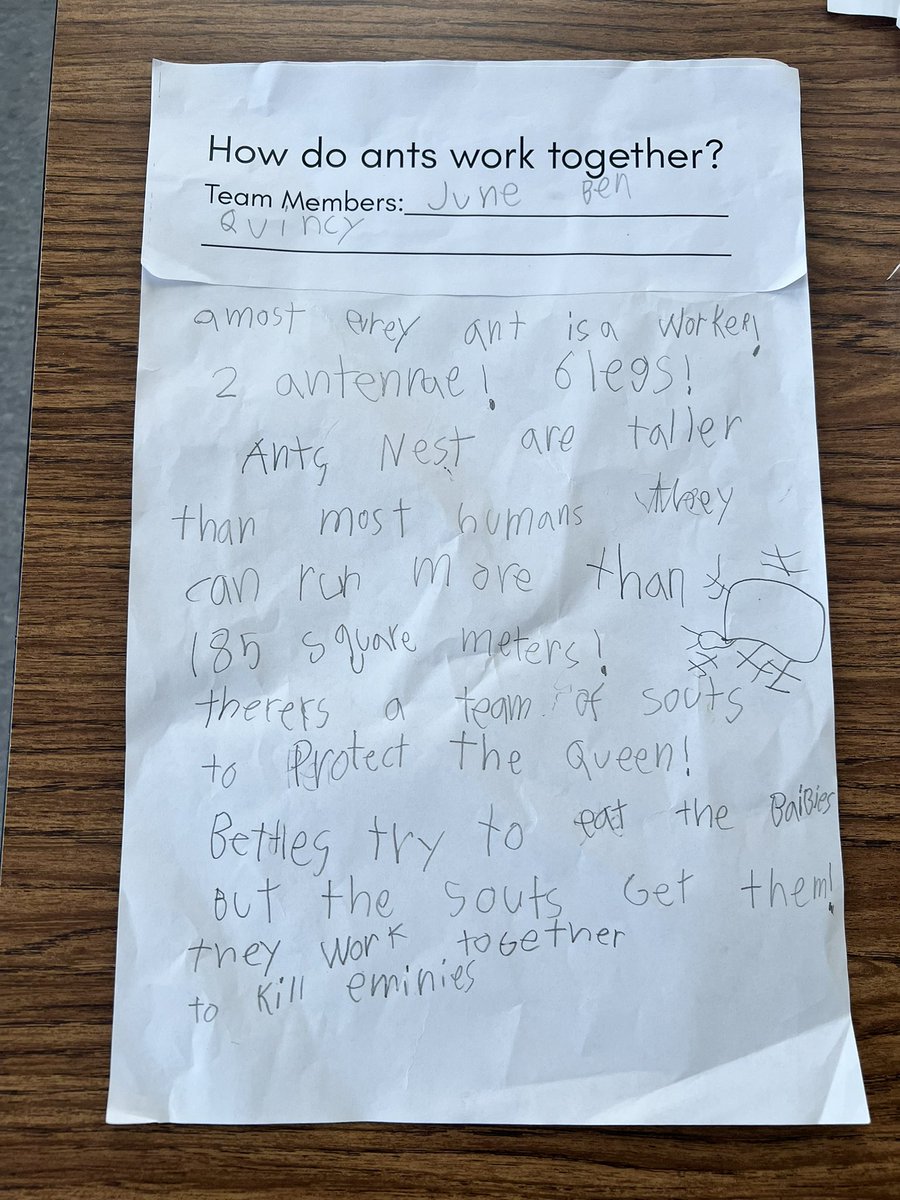 How do ants work together?
Team Members: June Ben
Quincy
amost evrey ant is a worker!
2 antennae! 6 legs!
Ants Nest are taller
than most humans they
can run more than
185 square meters!
therers a team of souts
to Protect the Queen!
Bettles try to eat the BaiBies
But the souts Get them!
they work toGether
to kill eminies